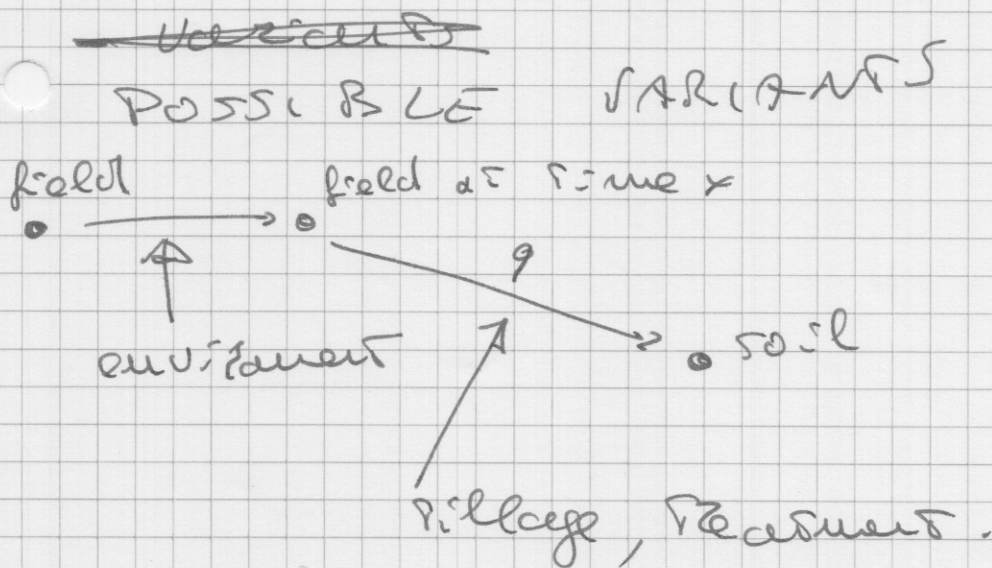 Variants
POSSIBLE VARIANTS
field
field at time x
9
enviroment
soil
tillage, treatment.